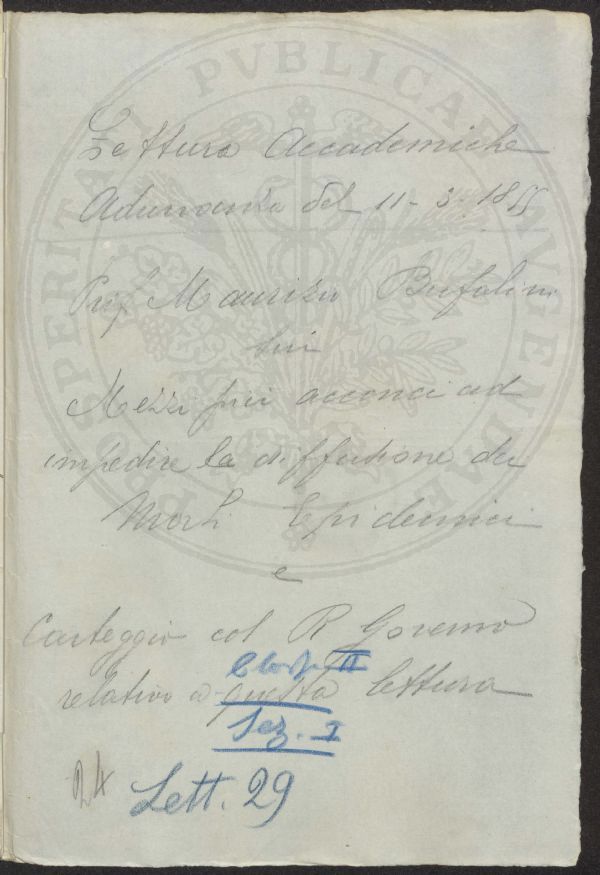 Letture Accademiche
Adunanza del 11-3-1855
Prof Maurizio Bufalini
sui
Mezzi più acconci ad
impedire la diffusione dei
Morbi Epidemici
e
Carteggio col R Governo
relativo a questa lettura
Classe II
Sez. I
24 Lett. 29
PROSPERITATI PVBLICAE AVGENDAE